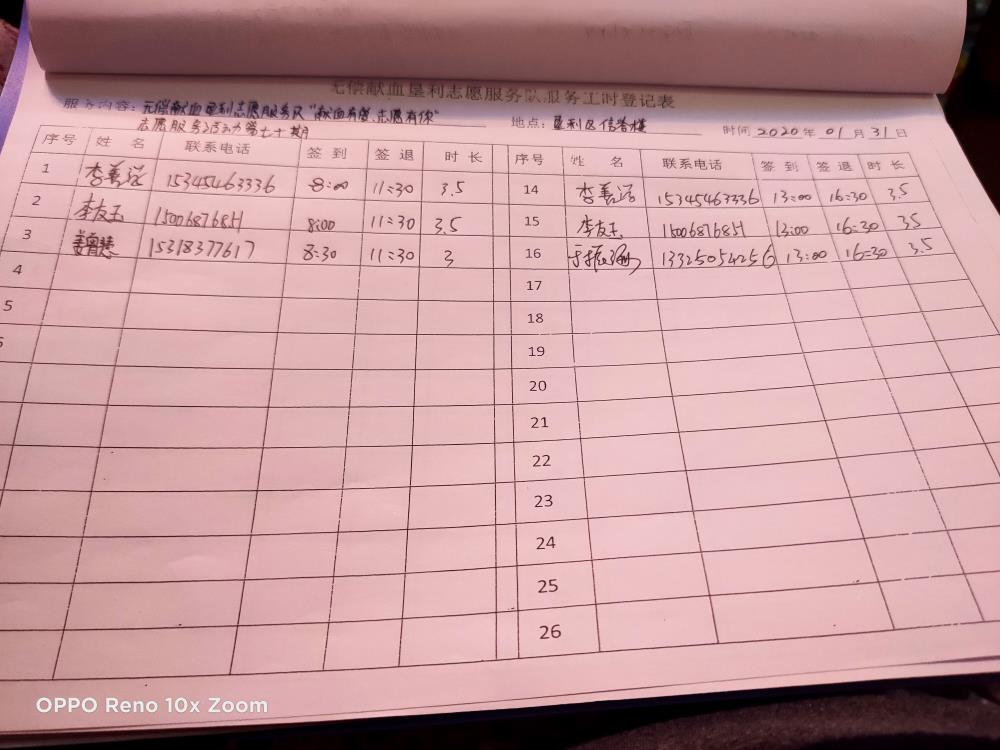 无偿献血垦利志愿服务队服务工时登记表
服务内容：无偿献血垦利志愿服务队"献血有爱、志愿有你"
志愿服务活动第七十期
地点：垦利区信誉楼
时间 2020 年 01 月 31 日
序号 姓 名 联系电话 签 到 签 退 时 长 序号 姓 名 联系电话 签 到 签 退 时 长
1 李善活 15345463336 8:00 11:30 3.5 14 李善活 15345463336 13:00 16:30 3.5
2 李友玉 15006876851 8:00 11:30 3.5 15 李友玉 15006876851 13:00 16:30 3.5
3 15318377617 8:30 11:30 3 16 13325054256 13:00 16:30 3.5
4 17
5 18
19
20
21
22
23
24
25
26
OPPO Reno 10x Zoom